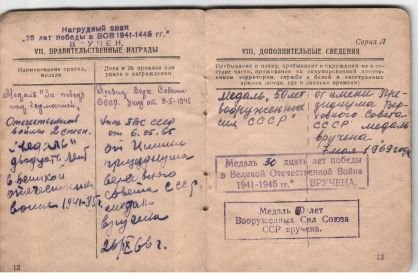 Нагрудный знак
"25 лет победы в ВОВ 1941-1945 гг."
ВРУЧЕН.
VII. ПРАВИТЕЛЬСТВЕННЫЕ НАГРАДЫ
Наименование ордена,
медали
Дата и № приказа или
указа о награждении
Медаль "За победу
над Германией"
Президиум Верх. Совета
СССР. Указ от 9.5.1945
Отечественной
войны 2 степ.
Указ ПВС СССР
от 6.05.65
"Медаль"
двадцать лет
в Великой
отечественной
войне 1941-45г.
от Имени
президиума
верховного
совета СССР
медаль
вручена
26/IX 66г.
12
Серия Л
VIII. ДОПОЛНИТЕЛЬНЫЕ СВЕДЕНИЯ
Пребывание в плену, пребывание в окружении и в
составе части, проживание на оккупированной против-
ником территории, служба в белой и иностранных
армиях (когда, где и сколько времени)
Медаль, 50 лет
вооруженных
сил СССР"
от имени Пре-
зидиума Вер-
ховного Совета
СССР медаль
вручена
7 мая 1969 года
Медаль 30 дцать лет победы
в Великой Отечественной Война
1941-1945 гг." ВРУЧЕНА.
Медаль 60 лет
Вооруженных Сил Союза
ССР вручена.
13